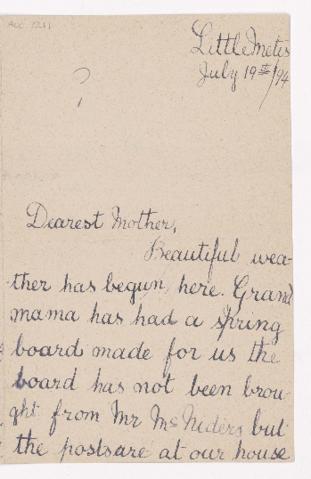 Acc 1211
?
Little Metis
July 19th/94
Dearest Mother,
Beautiful wea-
ther has begun here. Grand
mama has had a spring
board made for us the
board has not been brou
ght from Mr McNiders but
the posts are at our house